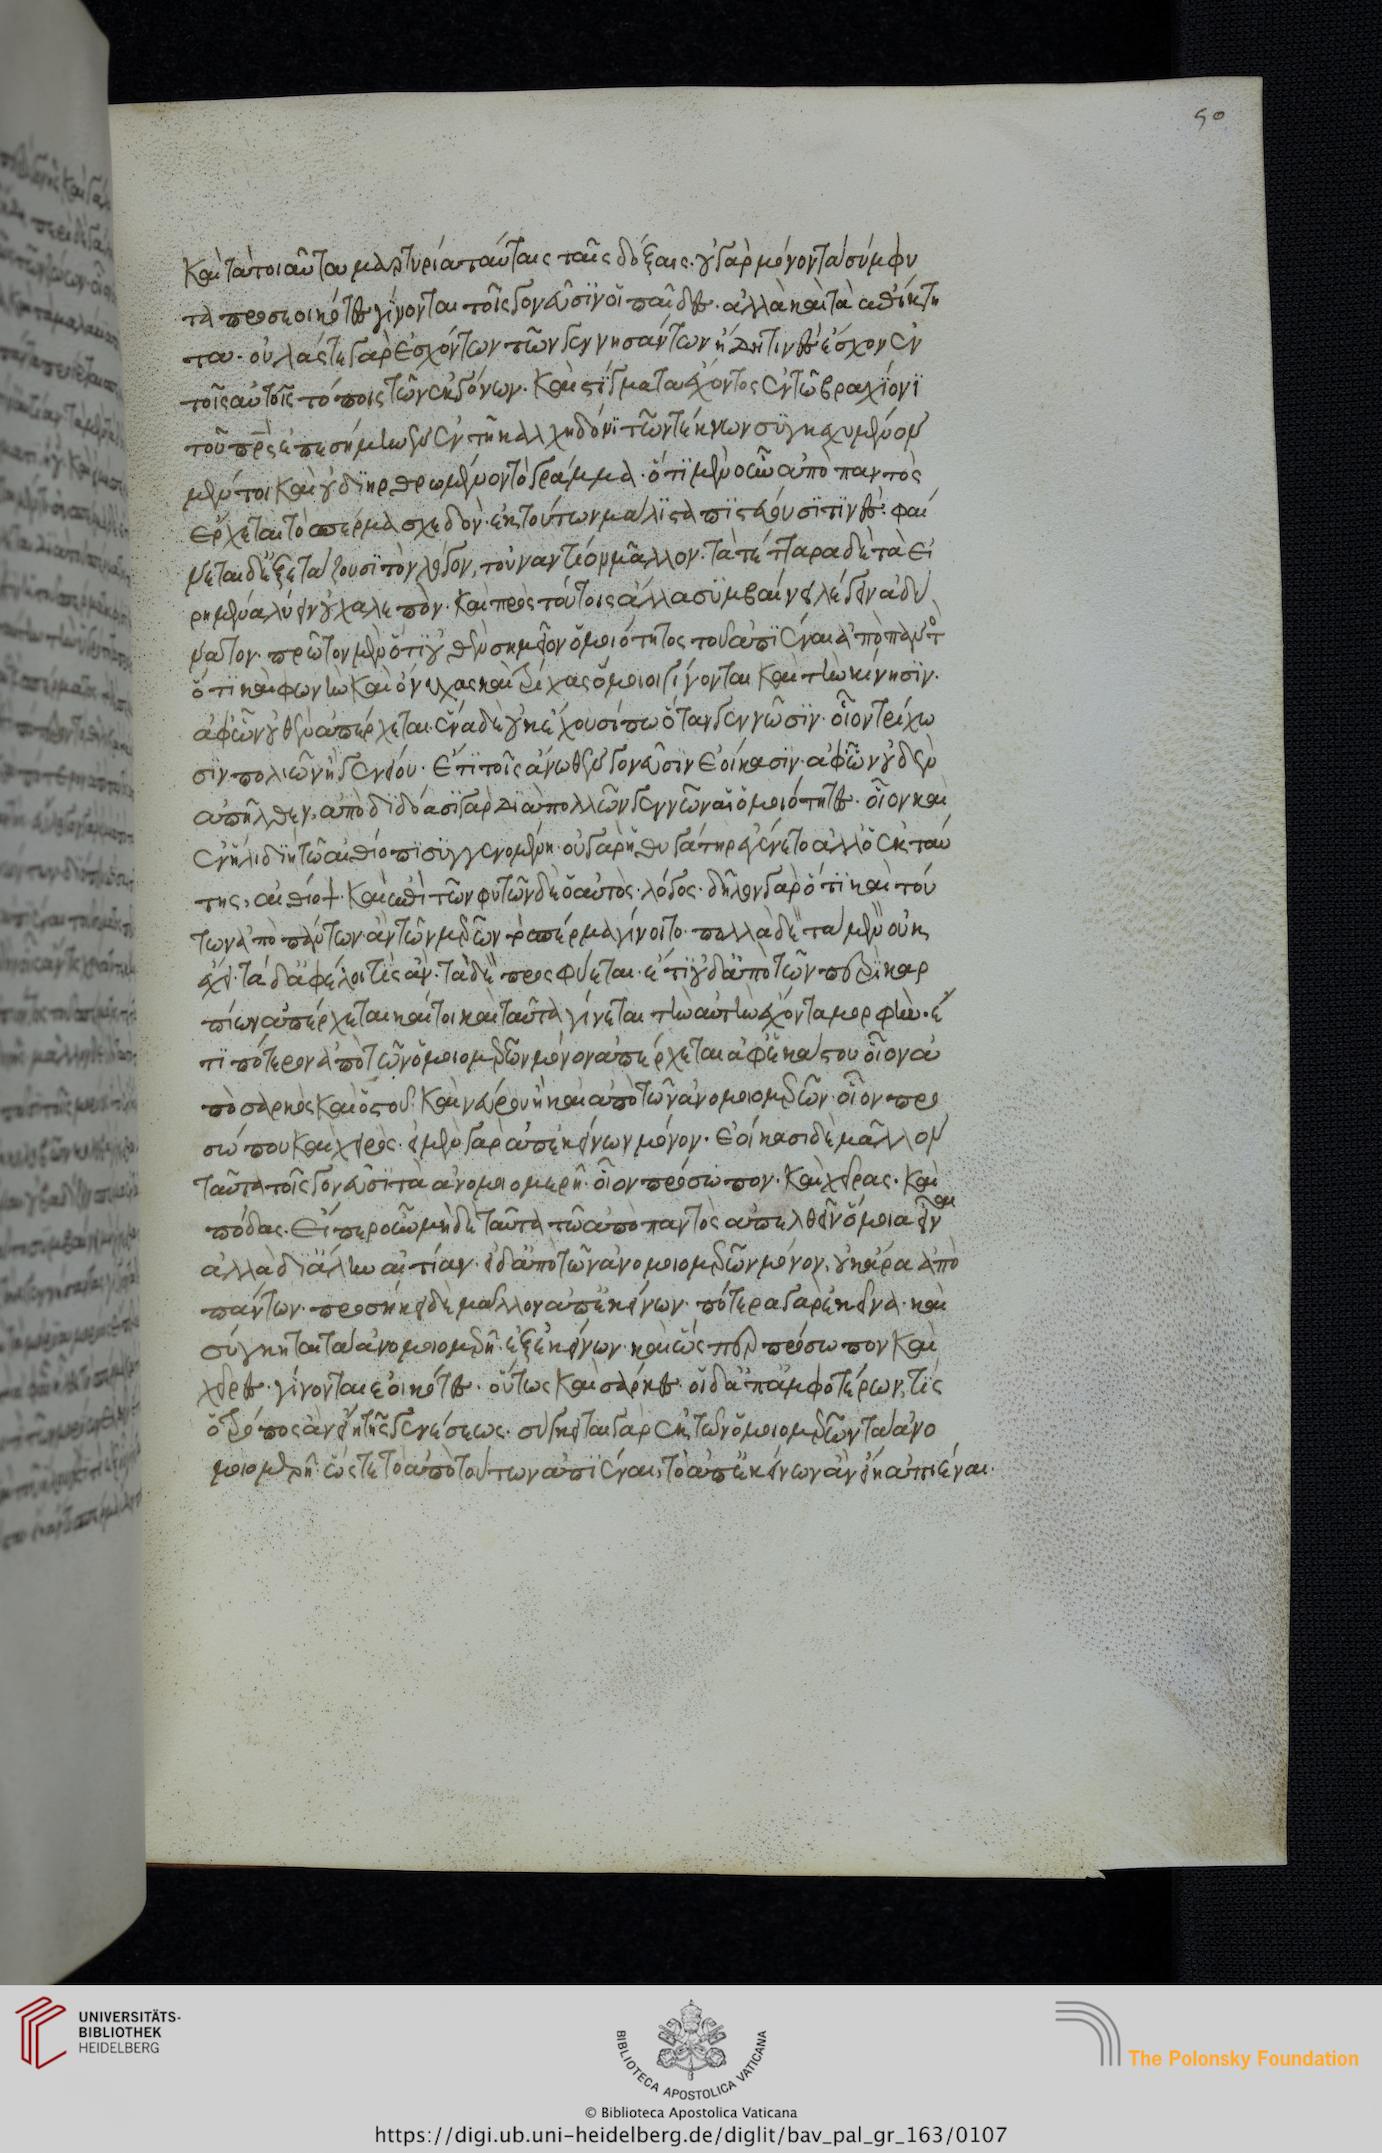 50
καὶ τὰ τοιαῦτα μαρτυρία ταύταις ταῖς δόξαις· οὐ γὰρ μόνον τὰ σύμφυ
τα προσεοικότες γίνονται τοῖς γονεῦσιν οἱ παῖδες· ἀλλὰ καὶ τὰ
τα· οὐλάς τε γὰρ ἐχόντων τῶν γεννησάντων ἤδη τινὲς ἔσχον ἐν
τοῖς αὐτοῖς τόποις τῶν ἐκγόνων· καὶ στίγματα ἔχοντος ἐν τῶ βραχίονι
τοῦ πρς ἐπεσήμηνεν ἐν τῆ καλχηδόνι τῶν τέκνων συγκεχυμένον
μέντοι καὶ οὐ διηρθρωμένον τὸ γράμμα· ὅτι μὲν οὖν ἀπὸ παντὸς
ἔρχεται τὸ σπέρμα σχεδὸν ἐκ τούτων μάλιστα πιστεύουσι τινές· φαί
νεται δ' ἐξετάζουσι τὸν λόγον, τοὐναντίον μᾶλλον· τά τε γὰρ
ρημένα λύειν οὐ χαλεπὸν· καὶ πρὸς τούτοις ἄλλα συμβαίνει λέγειν ἀδύ
νατον· πρῶτον μὲν ὅτι οὐθὲν σημεῖον ὁμοιότητος τοῦ ἀπιέναι ἀπὸ παντὸ
ὅτι καὶ φωνὴν καὶ ὄνυχας καὶ τρίχας ὅμοιοι γίνονται καὶ τὴν κίνησιν·
ἀφ' ὧν οὐθὲν ἀπέρχεται· ἔνια δὲ οὐκ ἔχουσί πω ὅταν γεννῶσιν· οἷον τρίχω
σιν πολιῶν ἢ γενείου· ἔτι τοῖς ἄνωθεν γονεῦσιν ἐοίκασιν· ἀφ' ὧν οὐδὲν
ἀπῆλθεν, ἀποδιδόασι γὰρ διὰ πολλῶν γενῶν αἱ ὁμοιότητες· οἷον καὶ
ἐν ἤλιδι ἡ τῶ αἰθίοπι συγγενομένη· οὐ γὰρ ἡ θυγάτηρ ἐγένετο ἀλλ' ὁ ἐκ ταύ
της, αἰθίοψ· καὶ ἐπὶ τῶν φυτῶν δὲ ὁ αὐτὸς· λόγος· δῆλον γὰρ ὅτι καὶ τού
των ἀπὸ πάντων ἂν τῶν μερῶν τὸ σπέρμα γίνοιτο· πολλὰ δὲ τὰ μὲν οὐκ
ἔχει· τὰ δ' ἀφέλοι τις ἄν· τὰ δὲ προσφύεται· ἔτι οὐδ' ἀπὸ τῶν περικαρ
πίων ἀπέρχεται καίτοι καὶ ταῦτα γίνεται τὴν αὐτὴν ἔχοντα μορφὴν· ἔ
τι πότερον ἀπὸ τῶν ὁμοιομερῶν μόνον ἀπέρχεται ἀφ' ἑκάστου οἷον ἀ
πὸ σαρκὸς καὶ ὀστοῦ καὶ νεύρου ἢ καὶ ἀπὸ τῶν ἀνομοιομερῶν· οἷον προ
σώπου καὶ χειρὸς· εἰ μὲν γὰρ ἀπ' ἐκείνων μόνον· ἐοίκασι δὲ μᾶλλον
ταῦτα τοῖς γονεῦσι τὰ ἀνομοιομερῆ· οἷον πρόσωπον· καὶ χεῖρας· καὶ
πόδας· εἴπερ οὖν μηδὲ ταῦτα τῶ ἀπὸ παντὸς ἀπελθεῖν ὅμοια εἶναι
ἀλλὰ δι' ἄλλην αἰτίαν· εἰ δ' ἀπὸ τῶν ἀνομοιομερῶν μόνον, οὐκ ἄρα ἀπὸ
πάντων· προσήκει δὲ μᾶλλον ἀπ' ἐκείνων· πότερα γὰρ ἐκεῖνα· καὶ
σύγκειται τὰ ἀνομοιομερῆ· ἐξ ἐκείνων· καὶ ὥσπερ πρόσωπον καὶ
χεῖρες γίνονται ἐοικότες· οὕτως καὶ σάρκες· εἰ δ' ἀπ' ἀμφοτέρων, τίς
ὁ τρόπος ἂν εἴη τῆς γενέσεως· σύγκειται γὰρ ἐκ τῶν ὁμοιομερῶν τὰ ἀνο
μοιομερῆ· ὥστε τὸ ἀπὸ τούτων ἀπιέναι, τὸ ἀπ' ἐκείνων ἂν εἴη ἀπιέναι·
UNIVERSITÄTS-
BIBLIOTHEK
HEIDELBERG
BIBLIOTECA APOSTOLICA VATICANA
The Polonsky Foundation
© Biblioteca Apostolica Vaticana
https://digi.ub.uni-heidelberg.de/diglit/bav_pal_gr_163/0107